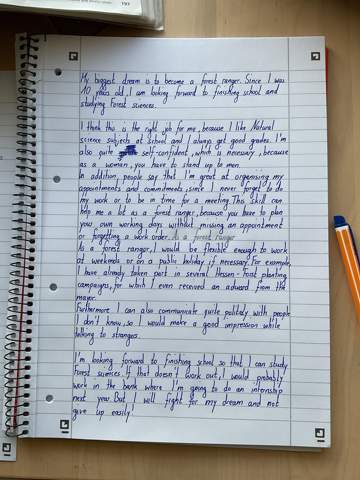 My biggest dream is to become a forest ranger. Since I was
10 years old, I am looking forward to finishing school and
studying Forest sciences.
I think this is the right job for me, because I like Natural
science subjects at school and I always get good grades. I'm
also quite self-confident, which is necessary, because
as a woman, you have to stand up to men.
In addition, people say that I'm great at organising my
appointments and commitments, since I never forget to do
my work or to be in time for a meeting. This skill can
help me a lot as a forest ranger, because you have to plan
your own working days without missing an appointment
or forgetting a work order. As a forest ranger
As a forest ranger, I would be flexible enough to work
at weekends or on a public holiday if necessary. For example,
I have already taken part in several Hessen-Forst planting
campaigns, for which I even received an adward from the
major.
Furthermore I can also communicate quite politely with people
I don't know, so I would make a good impression while
talking to stranges.
I'm looking forward to finishing school so that I can study
Forest sciences. If that doesn't work out, I would probably
work in the bank where I'm going to do an internship
next year. But I will fight for my dream and not
give up easily!